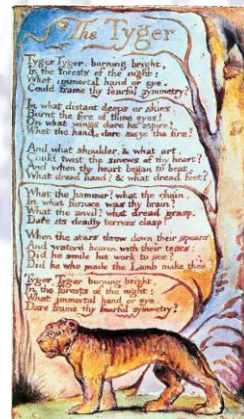 The Tyger
Tyger Tyger, burning bright,
In the forests of the night:
What immortal hand or eye,
Could frame thy fearful symmetry?
In what distant deeps or skies
Burnt the fire of thine eyes!
On what wings dare he aspire?
What the hand, dare sieze the fire?
And what shoulder, & what art,
Could twist the sinews of thy heart?
And when thy heart began to beat,
What dread hand? & what dread feet?
What the hammer? what the chain,
In what furnace was thy brain?
What the anvil? what dread grasp,
Dare its deadly terrors clasp!
When the stars threw down their spears
And water'd heaven with their tears:
Did he smile his work to see?
Did he who made the Lamb make thee?
Tyger, Tyger burning bright,
In the forests of the night:
What immortal hand or eye,
Dare frame thy fearful symmetry?